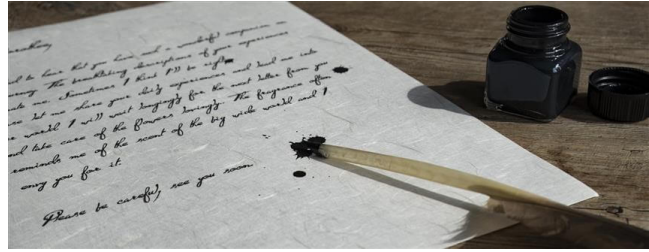 to hear that you have met a wonderful companion on
The breathtaking descriptions of your experiences
me. Sometimes I think I'll go right
let me share your daily experiences and send me into
world. I will wait longingly for the next letter from you
and take care of the flowers lovingly. The fragrance often
reminds me of the scent of the big wide world and I
envy you for it.
Please be careful, see you soon